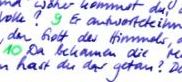 und woher kommst du,
volke? 9 Er antwortete ihnen
den Gott des Himmels, d
10 Da bekamen die
hast du da getan? D